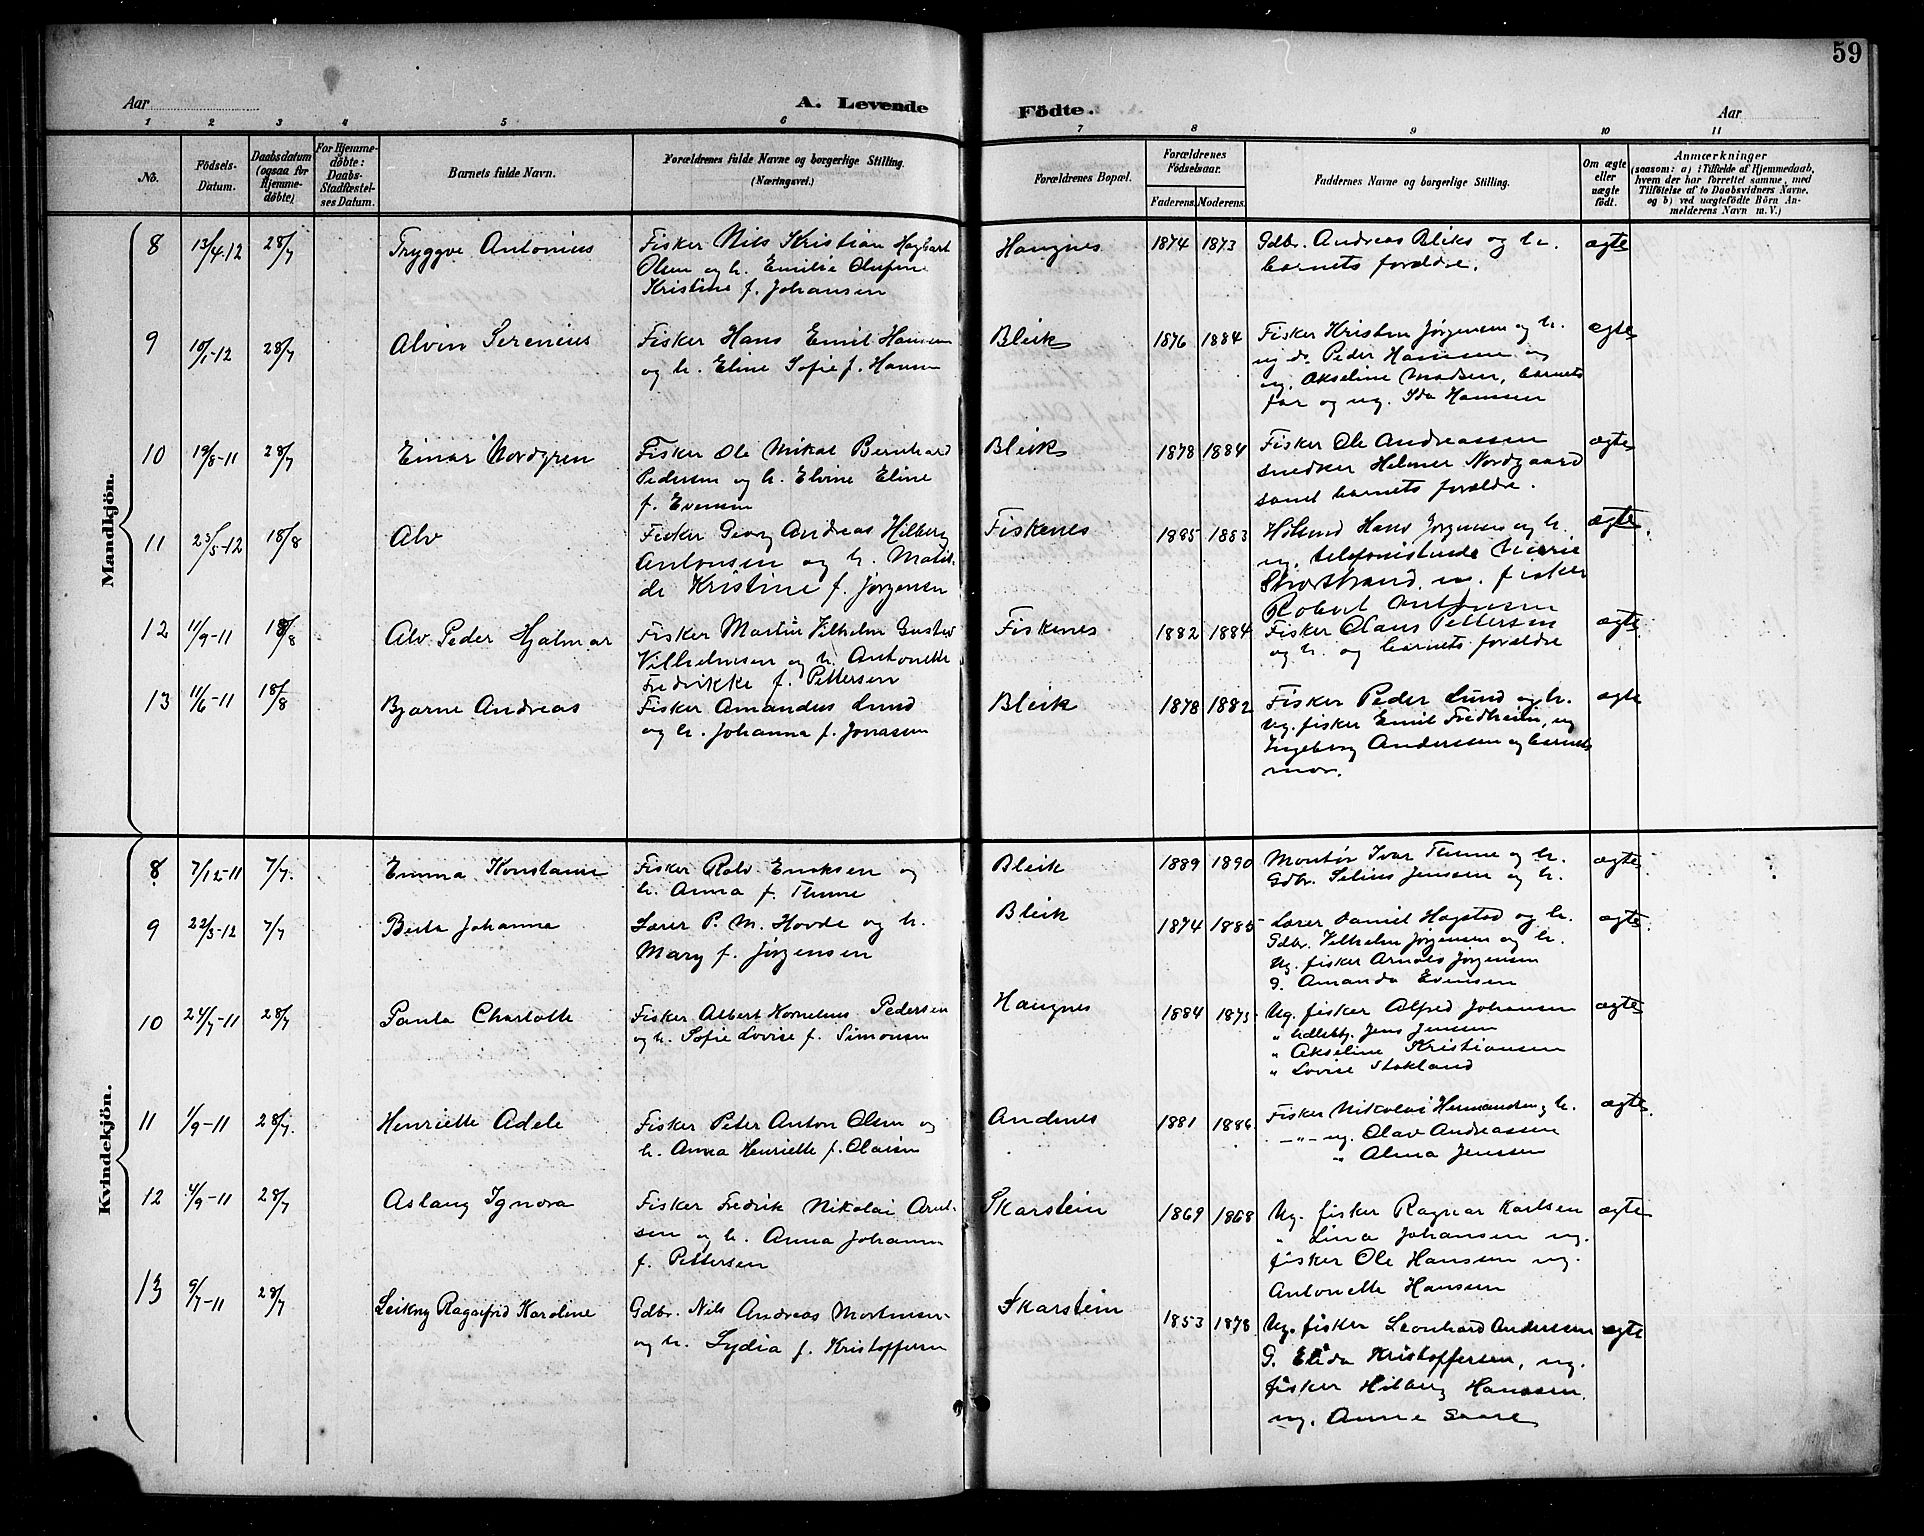 59
Aar
A. Levende
Födte.
Aar
1 2 3 4 5 6 7 8 9 10 11
No.
Födsels-
Datum.
Daabsdatum
(ogsaa for
Hjemme-
døbte)
For Hjemme-
døbte:
Daabs-
Stadfæstel-
ses Datum.
Barnets fulde Navn.
Forældrenes fulde Navne og borgerlige Stilling.
(Næringsvei.)
Forældrenes Bopæl.
Forældrenes
Födselsaar.
Faderens. Moderens.
Faddernes Navne og borgerlige Stilling.
Om ægte
eller
uægte
födt.
Anmærkninger
(saasom: a) i Tilfælde af Hjemmedaab,
hvem der har forrettet samme, med
Tilföielse af to Daabsvidners Navne,
og b) ved uægtefödte Börn An-
melderens Navn m. V.)
Mandkjön.
8 13/4-12 28/7 Tryggve Antonius
Fisker Nils Kristian Hagbart
Olsen og h. Emilie Olufine
Kristine f. Johansen
Haugnes 1874 1873
Gdbr. Andreas Bleiks og h.
barnets forældre.
ægte
9 10/1-12 28/7 Alvin Serenius
Fisker Hans Emil Hansen
og h. Eline Sofie f. Hansen
Bleik 1876 1884
Fisker Kristen Jørgensen og h.
ug do Peder Hansen og
ug. Akseline Madsen, barnets
far og ug. Ida Hansen
ægte
10 19/8-11 28/7 Einar Nordgren
Fisker Ole Mikal Bernhard
Pedersen og h. Elvine Eline
f. Evensen
Bleik 1878 1884
Fisker Ole Andreassen
snedker Helmer Nordgaard
samt barnets forældre.
ægte
11 23/5-12 18/8 Alv
Fisker Georg Andreas Hilberg
Antonsen og h. Matil-
de Kristine f. Jørgensen
Fiskenes 1885 1883
Hans Jørgensen og h.
ug. telefonistinde Marie
Storstrand, fisker
Robert Antonsen
ægte.
12 11/9-11 18/8 Alv Peder Hjalmar
Fisker Martin Vilhelm Gustav
Vilhelmsen og h. Antonette
Fredrikke f. Pettersen
Fiskenes 1882 1884
Fisker Olaus Pettersen
og h. og barnets forældre
ægte
13 11/6-11 18/8 Bjarne Andreas
Fisker Amandus Lund
og h. Johanna f. Jonassen
Bleik 1878 1882
Fisker Peder Lund og h.
Ug. fisker Emil Fredheim, ug
Ingeborg Anderssen og barnets
mor.
ægte
Kvindekjön.
8 7/12-11 7/7. Emma Konstanse
Fisker Rolv Eriksen og
h. Anna f. Thune
Bleik 1889 1890
Montør Ivar Thune og h.
Gdbr. Selius Jenssen og h.
ægte
9 22/3-12 7/7 Berta Johanna
Lærer P. M. Hovde og h.
Mary f. Jørgensen
Bleik 1874 1885
Lærer Daniel Hagstad og h.
Gdbr. Vilhelm Jørgensen og h.
Ug. fisker Arnold Jørgensen
P. Amanda Evensen
ægte.
10 24/7-11 28/7 Paula Charlotte
Fisker Albert Kornelius Pedersen
og h. Sofie Lovise f. Simonsen
Haugnes 1884 1875
Ug. fisker Alfred Johansen
" Jens Jenssen
" Akseline Kristiansen
" Lovise Stokland
ægte
11 1/9-11 28/7. Henriette Adele
Fisker Peter Anton Olsen og
h. Anna Henriette f. Olaisen
Andenes 1881 1886
Fisker Nikolai Hermansen og h.
-"- ug. Olav Andreassen
" Alma Jenssen
ægte.
12 4/9-11 28/7 Aslaug Ignora
Fisker Fredrik Nikolai Arnt-
sen og h. Anna Johanna
f. Pettersen
Skarstein 1869 1868
Ug. fisker Ragnar Karlsen
" Lina Johansen ug.
fisker Ole Hansen ug.
Antonette Hansen
ægte
13 9/7-11 28/7 Leikny Ragnfrid Karoline
Gdbr. Nils Andreas Mortensen
og h. Lydia f. Kristoffersen
Skarstein 1853 1878
Ug. fisker Leonhard Anderssen
P. Elida Kristoffersen, ug.
fisker Hilberg Hanssen,
ug. Anna Saare
ægte